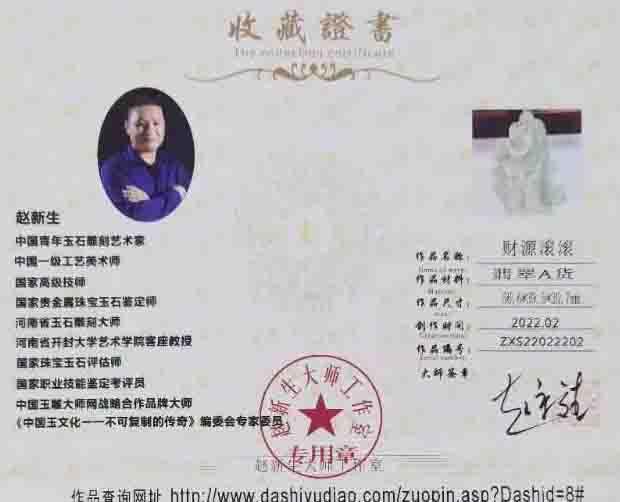 收藏證書
The collection certificate
赵新生
中国青年玉石雕刻艺术家
中国一级工艺美术师
国家高级技师
国家贵金属珠宝玉石鉴定师
河南省玉石雕刻大师
河南省开封大学艺术学院客座教授
国家珠宝玉石评估师
国家职业技能鉴定考评员
中国玉雕大师网战略合作品牌大师
《中国玉文化——不可复制的传奇》编委会专家委员
作品名称: 财源滚滚
作品材料: 翡翠A货
作品尺寸:
创作时间: 2022.02
作品编号: ZXS22022202
大师签章:
赵新生大师工作室
专用章
赵新生大师工作室
作品查询网址 http://www.dashiyudiao.com/zuopin.asp?Dashid=8#